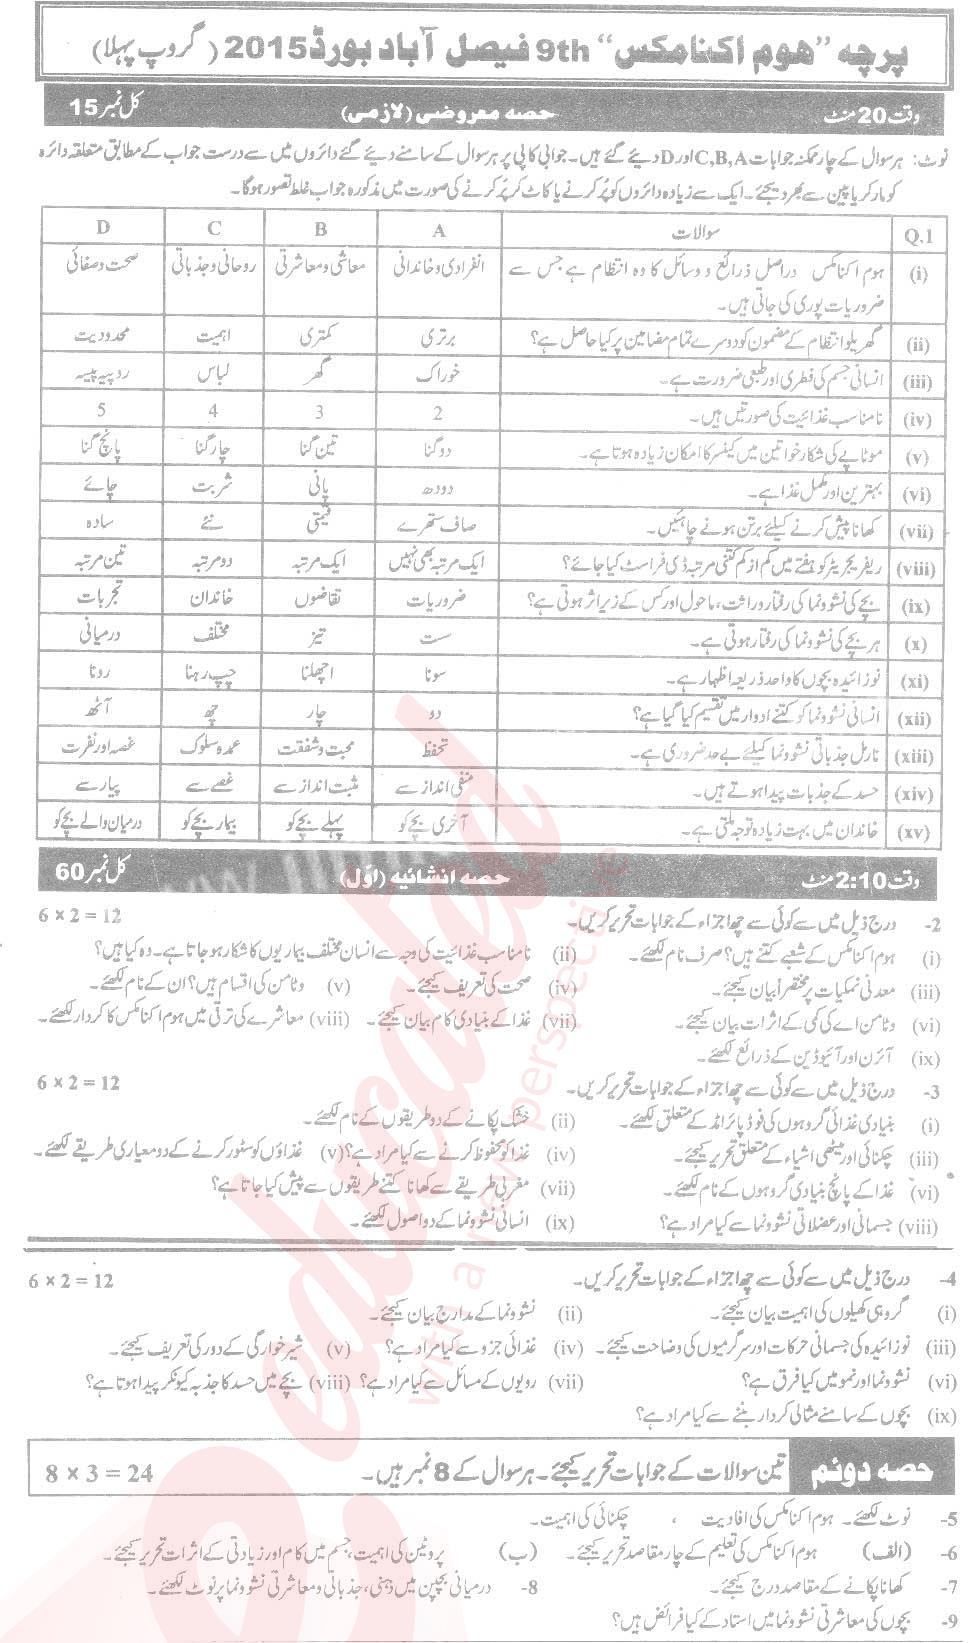 پرچہ "ھوم اکنامکس" 9th فیصل آباد بورڈ 2015 (گروپ پہلا)
وقت 20 منٹ حصہ معروضی (لازمی) کل نمبر 15
نوٹ: ہر سوال کے چار ممکنہ جوابات C,B,A اور D دیے گئے ہیں۔ جوابی کاپی پر ہر سوال کے سامنے دیے گئے دائروں میں سے درست جواب کے مطابق متعلقہ دائرہ
کو مارکر یا پین سے بھر دیجئے۔ ایک سے زیادہ دائروں کو پُر کرنے یا کاٹ کر پُر کرنے کی صورت میں مذکورہ جواب غلط تصور ہوگا۔
Q.1 سوالات A B C D
(i) ہوم اکنامکس دراصل ذرائع و وسائل کا وہ انتظام ہے جس سے انفرادی و خاندانی معاشی و معاشرتی روحانی و جذباتی صحت و صفائی
ضروریات پوری کی جاتی ہیں۔
(ii) گھریلو انتظام کے مضمون کو دوسرے تمام مضامین پر کیا حاصل ہے؟ برتری کمتری اہمیت محدودیت
(iii) انسانی جسم کی فطری اور طبعی ضرورت ہے۔ خوراک گھر لباس روپیہ پیسہ
(iv) نامناسب غذائیت کی صورتیں ہیں۔ 2 3 4 5
(v) موٹاپے کی شکار خواتین میں کینسر کا امکان زیادہ ہوتا ہے۔ دو گنا تین گنا چار گنا پانچ گنا
(vi) بہترین اور مکمل غذا ہے۔ دودھ پانی شربت چائے
(vii) کھانا پیش کرنے کیلئے برتن ہونے چاہئیں۔ صاف ستھرے قیمتی نئے سادہ
(viii) ریفریجریٹر کو ہفتے میں کم از کم کتنی مرتبہ ڈی فراسٹ کیا جائے؟ ایک مرتبہ بھی نہیں ایک مرتبہ دو مرتبہ تین مرتبہ
(ix) بچے کی نشوونما کی رفتار وراثت، ماحول اور کس کے زیر اثر ہوتی ہے؟ ضروریات تقاضوں خاندان تجربات
(x) ہر بچے کی نشوونما کی رفتار ہوتی ہے۔ ست تیز مختلف درمیانی
(xi) نوزائیدہ بچوں کا واحد ذریعہ اظہار ہے۔ سونا اچھلنا چپ رہنا رونا
(xii) انسانی نشوونما کو کتنے ادوار میں تقسیم کیا گیا ہے؟ دو چار چھ آٹھ
(xiii) نارمل جذباتی نشوونما کیلئے بے حد ضروری ہے۔ تحفظ محبت و شفقت عمدہ سلوک غصہ اور نفرت
(xiv) حسد کے جذبات پیدا ہوتے ہیں۔ منفی انداز سے مثبت انداز سے غصے سے پیار سے
(xv) خاندان میں بہت زیادہ توجہ ملتی ہے۔ آخری بچے کو پہلے بچے کو بیمار بچے کو درمیان والے بچے کو
وقت 2:10 منٹ حصہ انشائیہ (اوّل) کل نمبر 60
2- درج ذیل میں سے کوئی سے چھ اجزاء کے جوابات تحریر کریں۔ 6 × 2 = 12
(i) ہوم اکنامکس کے شعبے کتنے ہیں؟ صرف نام لکھئے۔ (ii) نامناسب غذائیت کی وجہ سے انسان مختلف بیماریوں کا شکار ہو جاتا ہے۔ وہ کیا ہیں؟
(iii) معدنی نمکیات پر مختصراً بیان کیجئے۔ (iv) صحت کی تعریف کیجئے۔ (v) وٹامن کی اقسام ہیں؟ ان کے نام لکھئے۔
(vi) وٹامن اے کی کمی کے اثرات بیان کیجئے۔ (vii) غذا کے بنیادی کام بیان کیجئے۔ (viii) معاشرے کی ترقی میں ہوم اکنامکس کا کردار لکھئے۔
(ix) آئرن اور آئیوڈین کے ذرائع لکھئے۔
3- درج ذیل میں سے کوئی سے چھ اجزاء کے جوابات تحریر کریں۔ 6 × 2 = 12
(i) بنیادی غذائی گروہوں کی فوڈ پائرامڈ کے متعلق لکھئے۔ (ii) خشک پکانے کے دو طریقوں کے نام لکھئے۔
(iii) چکنائی اور میٹھی اشیاء کے متعلق تحریر کیجئے۔ (iv) غذا کو محفوظ کرنے سے کیا مراد ہے؟ (v) غذاؤں کو سٹور کرنے کے دو معیاری طریقے لکھئے۔
(vi) غذا کے پانچ بنیادی گروہوں کے نام لکھئے۔ (vii) مغربی طریقے سے کھانا کتنے طریقوں سے پیش کیا جاتا ہے؟
(viii) جسمانی اور عضلاتی نشوونما سے کیا مراد ہے؟ (ix) انسانی نشوونما کے دو اصول لکھئے۔
4- درج ذیل میں سے کوئی سے چھ اجزاء کے جوابات تحریر کریں۔ 6 × 2 = 12
(i) گروہی کھیلوں کی اہمیت بیان کیجئے۔ (ii) نشوونما کے مدارج بیان کیجئے۔
(iii) نوزائیدہ کی جسمانی حرکات اور سرگرمیوں کی وضاحت کیجئے۔ (iv) غذائی جزو سے کیا مراد ہے؟ (v) شیر خوارگی کے دور کی تعریف کیجئے۔
(vi) نشوونما اور نمو میں کیا فرق ہے؟ (vii) رویوں کے مسائل سے کیا مراد ہے؟ (viii) بچے میں حسد کا جذبہ کیونکر پیدا ہوتا ہے؟
(ix) بچوں کے سامنے مثالی کردار بننے سے کیا مراد ہے؟
حصہ دوئم تین سوالات کے جوابات تحریر کیجئے۔ ہر سوال کے 8 نمبر ہیں۔ 8 × 3 = 24
5- نوٹ لکھئے۔ ہوم اکنامکس کی افادیت ، چکنائی کی اہمیت۔
6- (الف) ہوم اکنامکس کی تعلیم کے چار مقاصد تحریر کیجئے۔ (ب) پروٹین کی اہمیت، جسم میں کام اور زیادتی کے اثرات تحریر کیجئے۔
7- کھانا پکانے کے مقاصد درج کیجئے۔ 8- درمیانی بچپن میں ذہنی، جذباتی و معاشرتی نشوونما پر نوٹ لکھئے۔
9- بچوں کی معاشرتی نشوونما میں استاد کے کیا فرائض ہیں؟
educated
with a new perspective